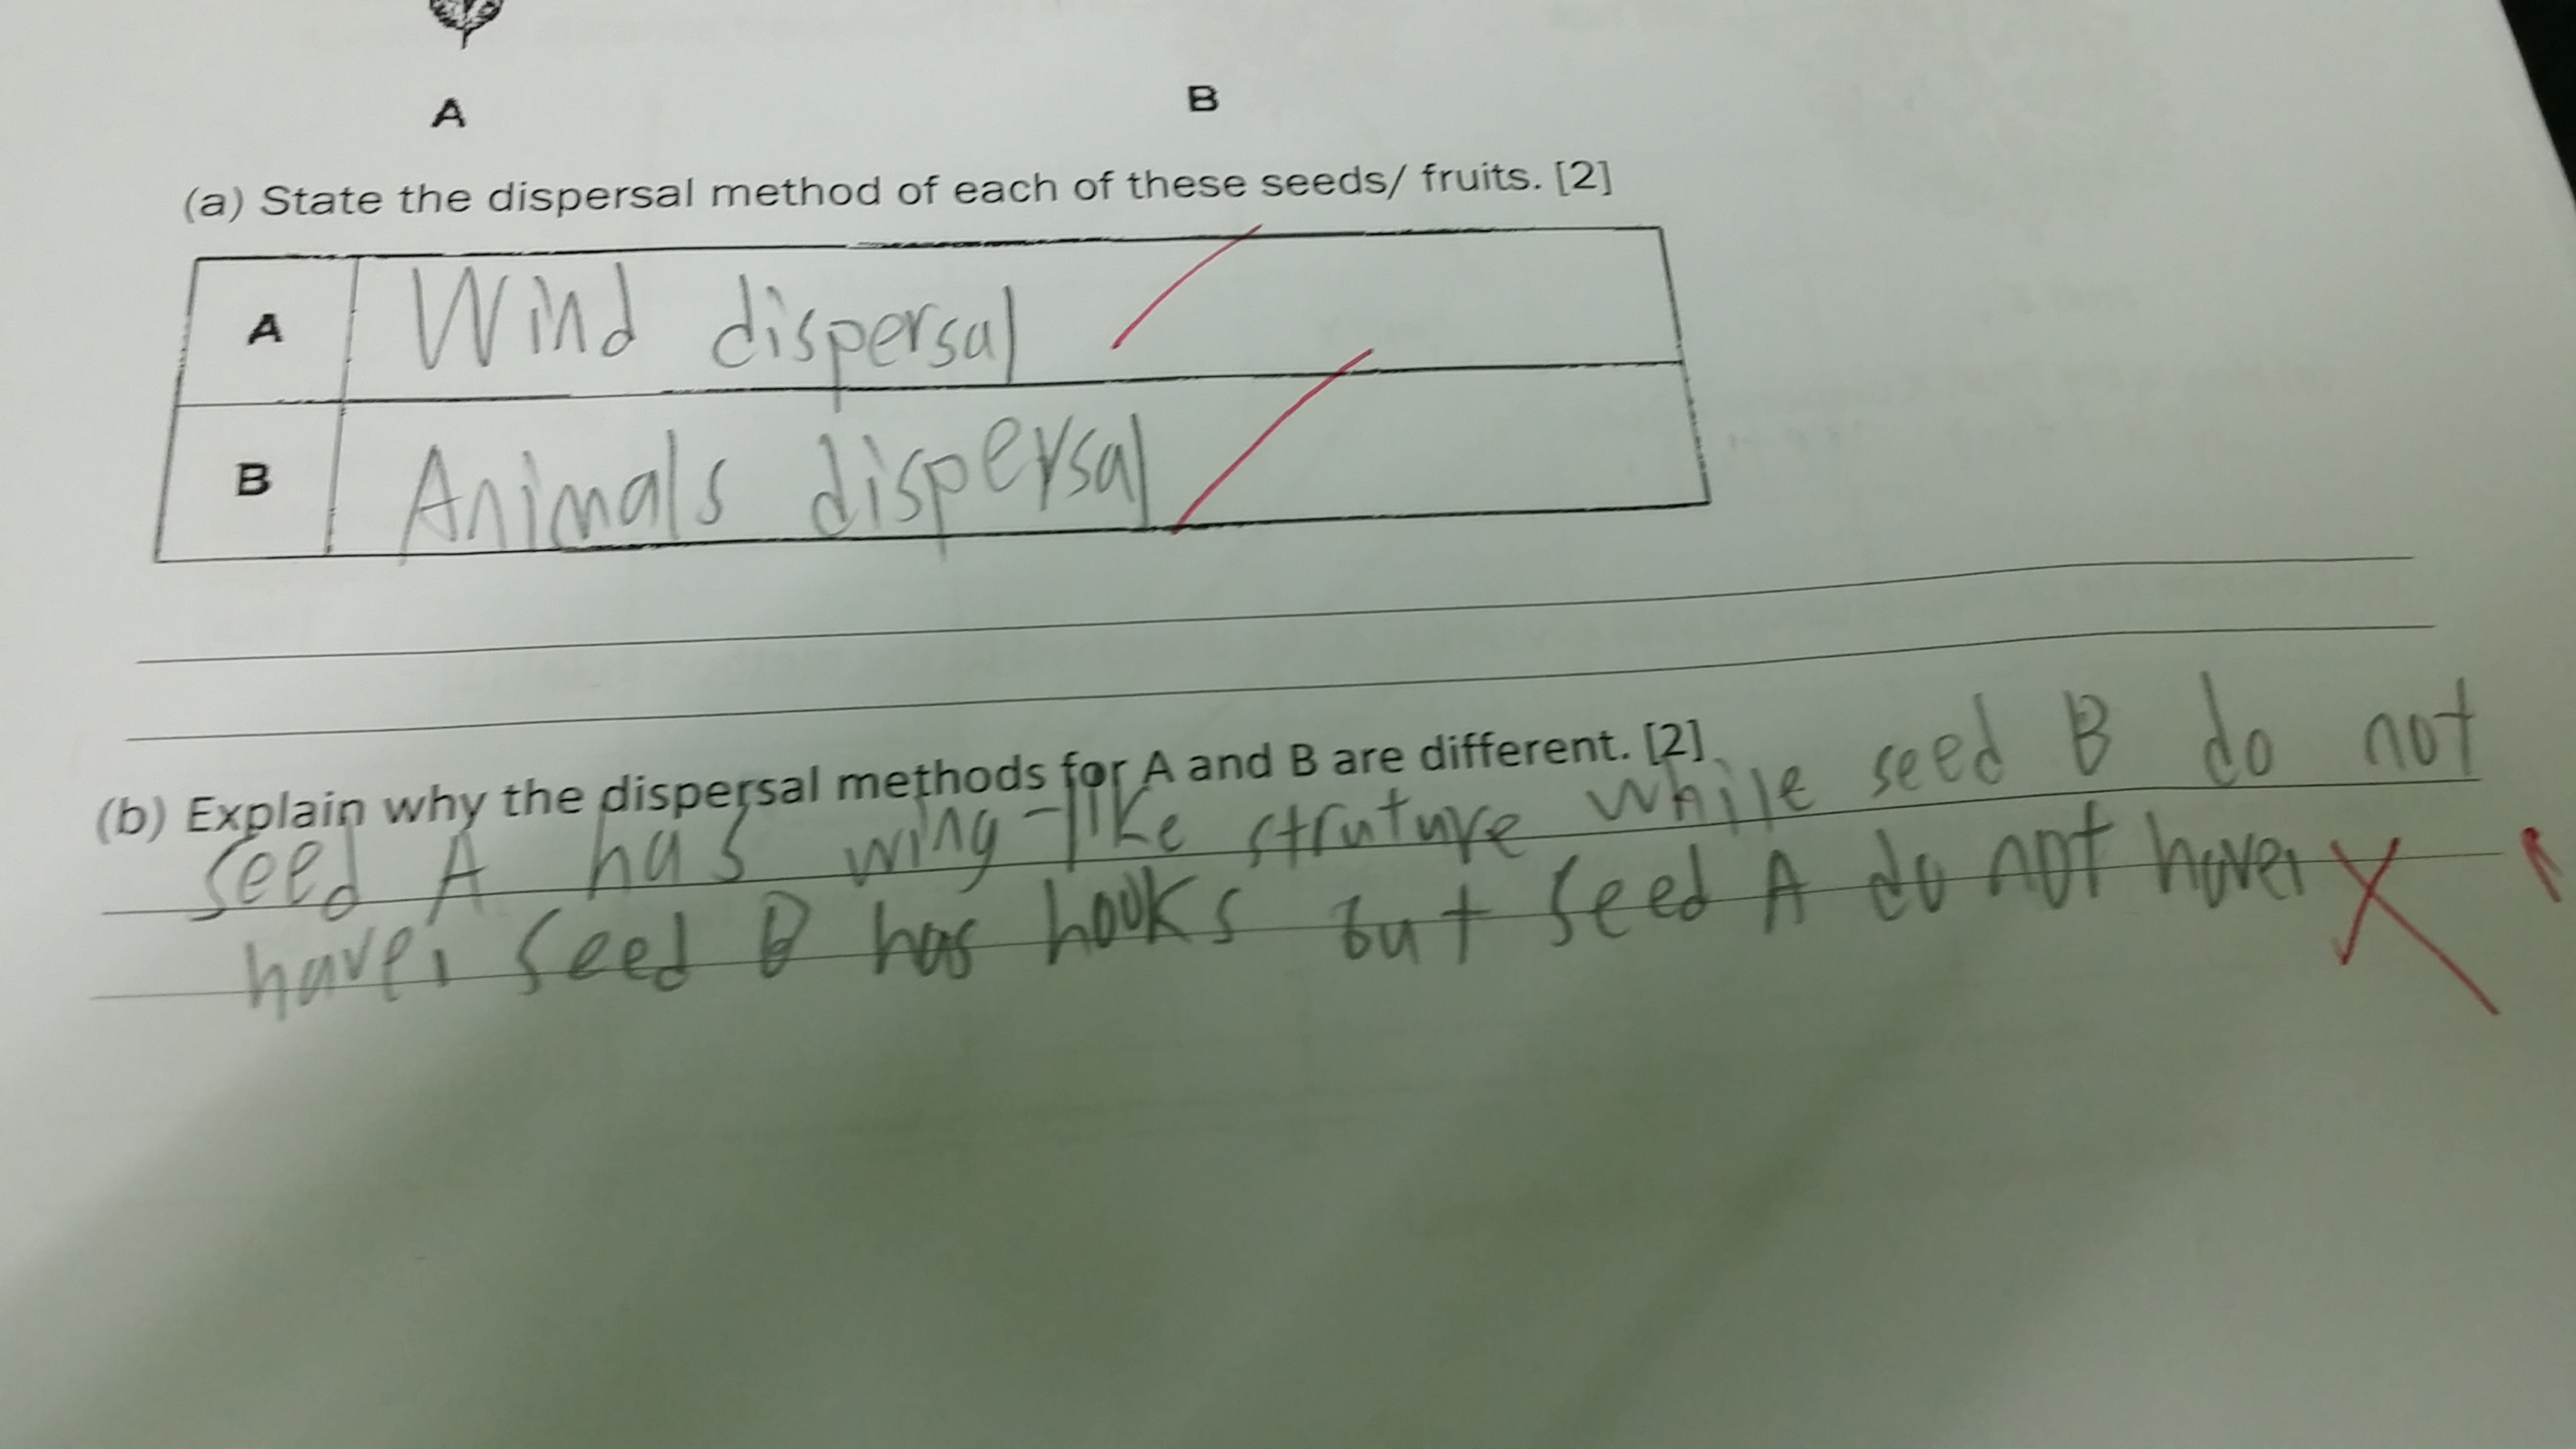 A
B
(a) State the dispersal method of each of these seeds/ fruits. [2]
A Wind dispersal
B Animals dispersal
(b) Explain why the dispersal methods for A and B are different. [2]
seed A has wing-like struture while seed B do not
have. Seed B has hooks but seed A do not have.